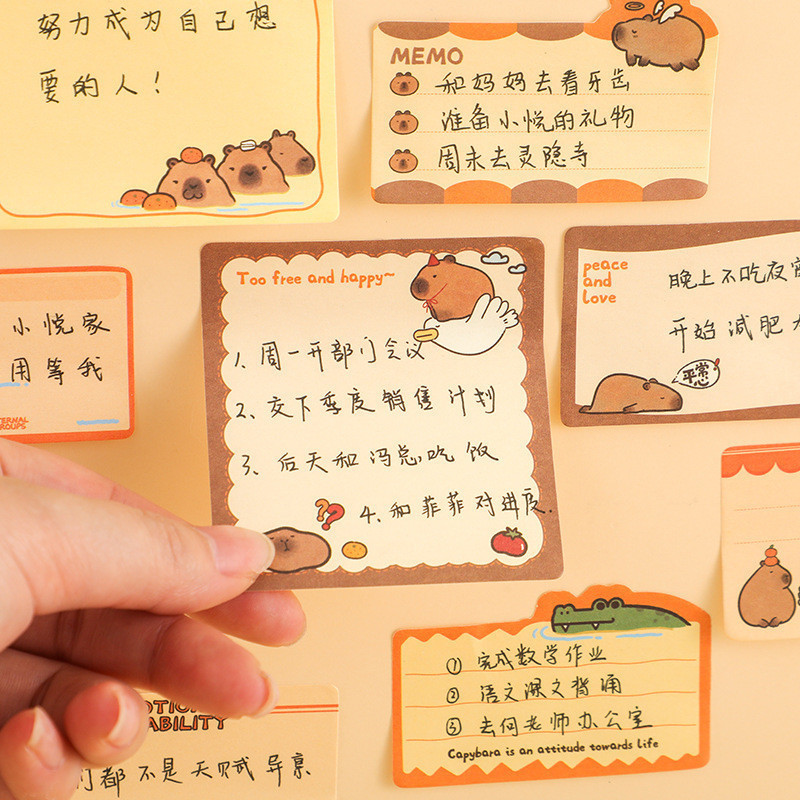 努力成为自己想
要的人！
MEMO
和妈妈去看牙齿
准备小悦的礼物
周末去灵隐寺
小悦家
用等我
Too free and happy~
1、周一开部门会议
2、交下季度销售计划
3、后天和冯总吃饭
4、和菲菲对进度.
peace
and
love
晚上不吃夜宵
开始减肥
平常心
① 完成数学作业
② 语文课文背诵
③ 去何老师办公室
Capybara is an attitude towards life
ABILITY
们都不是天赋异禀